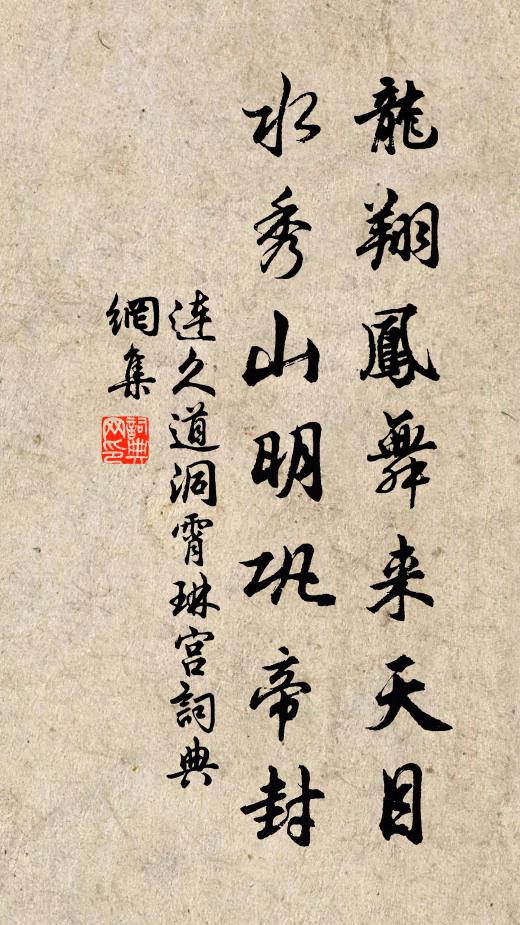 龍翔鳳舞来天目
水秀山明巩帝封
連久道洞霄琳宫詞典
網集
詞典
网印